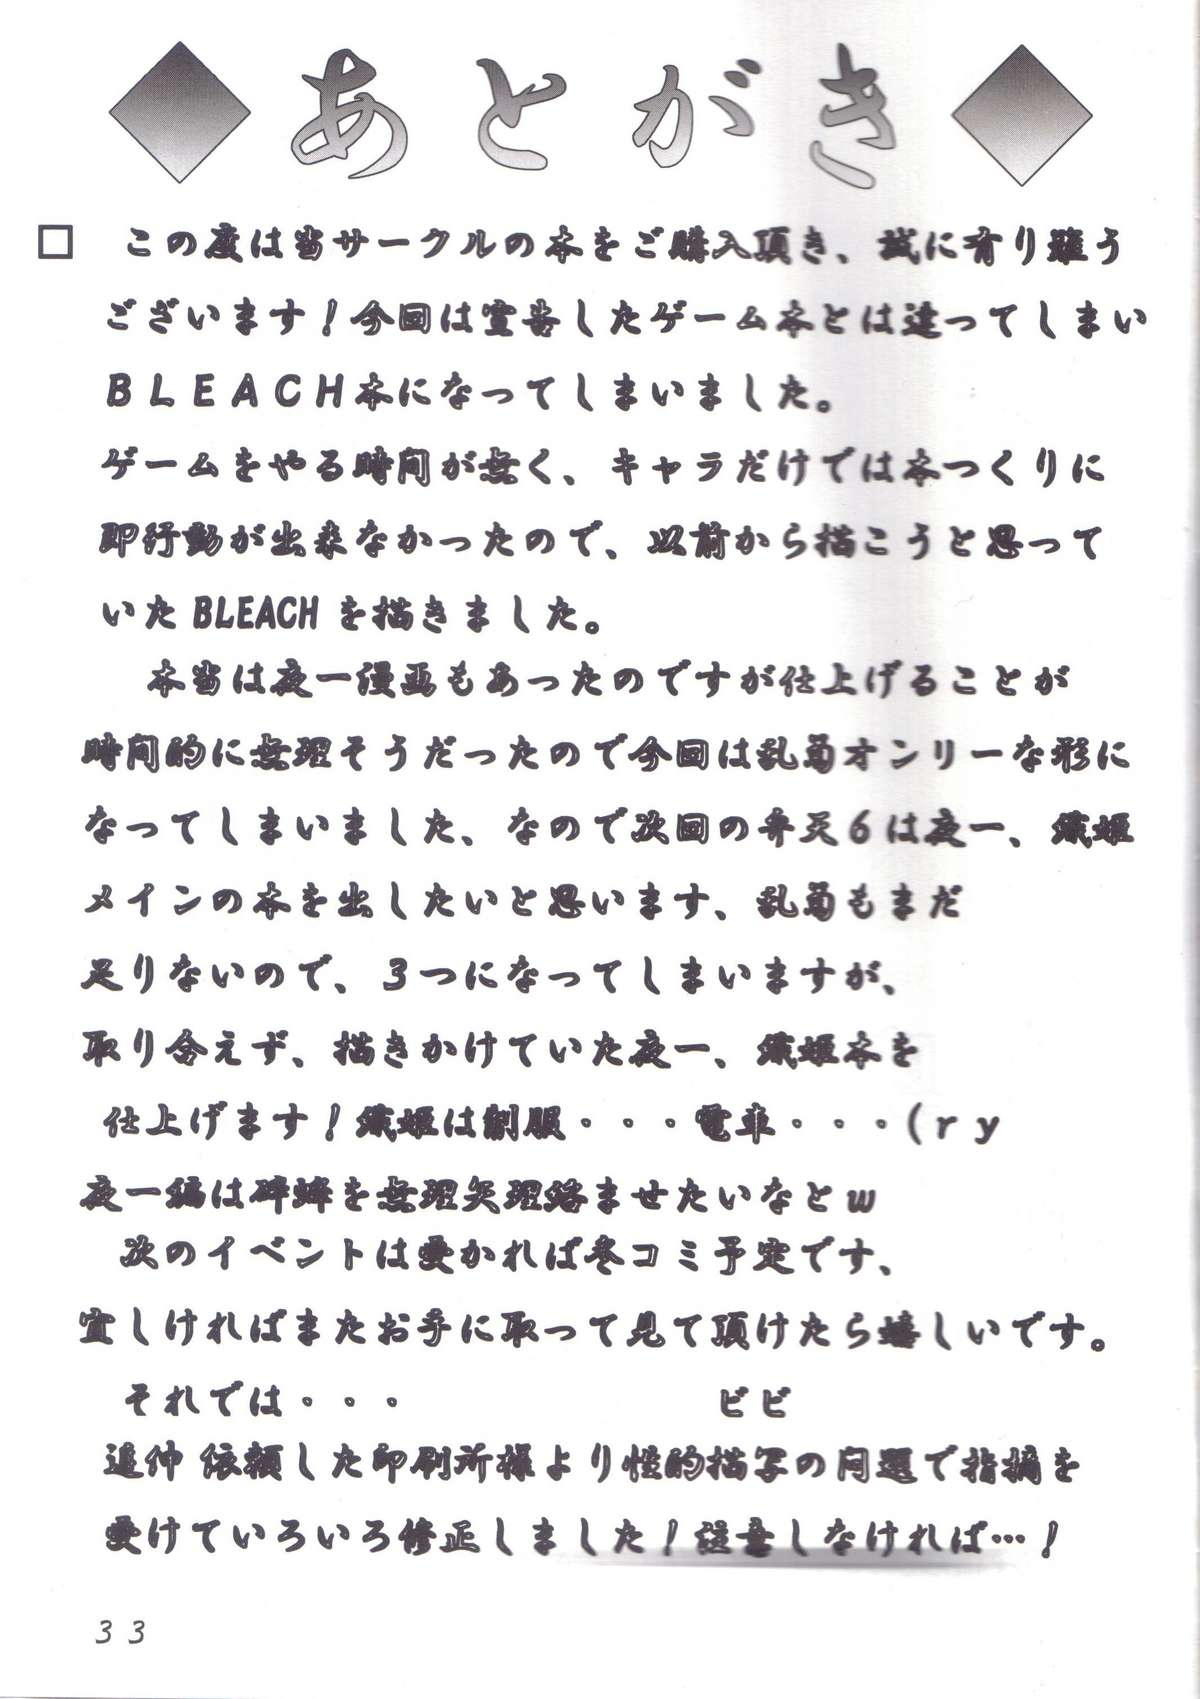 あとがき
□ この度は当サークルの本をご購入頂き、誠に有り難う
ございます！今回は宣告したゲーム本とは違ってしまい
ＢＬＥＡＣＨ本になってしまいました。
ゲームをやる時間が無く、キャラだけでは本つくりに
即行動が出来なかったので、以前から描こうと思って
いたBLEACHを描きました。
本当は夜一漫画もあったのですが仕上げることが
時間的に無理そうだったので今回は乱菊オンリーな形に
なってしまいました、なので次回の弁天６は夜一、織姫
メインの本を出したいと思います、乱菊もまだ
足りないので、３つになってしまいますが、
取り合えず、描きかけていた夜一、織姫本を
仕上げます！織姫は制服・・・電車・・・（ｒｙ
夜一編は砕蜂を無理矢理絡ませたいなとｗ
次のイベントは受かれば冬コミ予定です、
宜しければまたお手に取って見て頂けたら嬉しいです。
それでは・・・　ビビ
追伸 依頼した印刷所様より性的描写の問題で指摘を
受けていろいろ修正しました！注意しなければ…！
３３